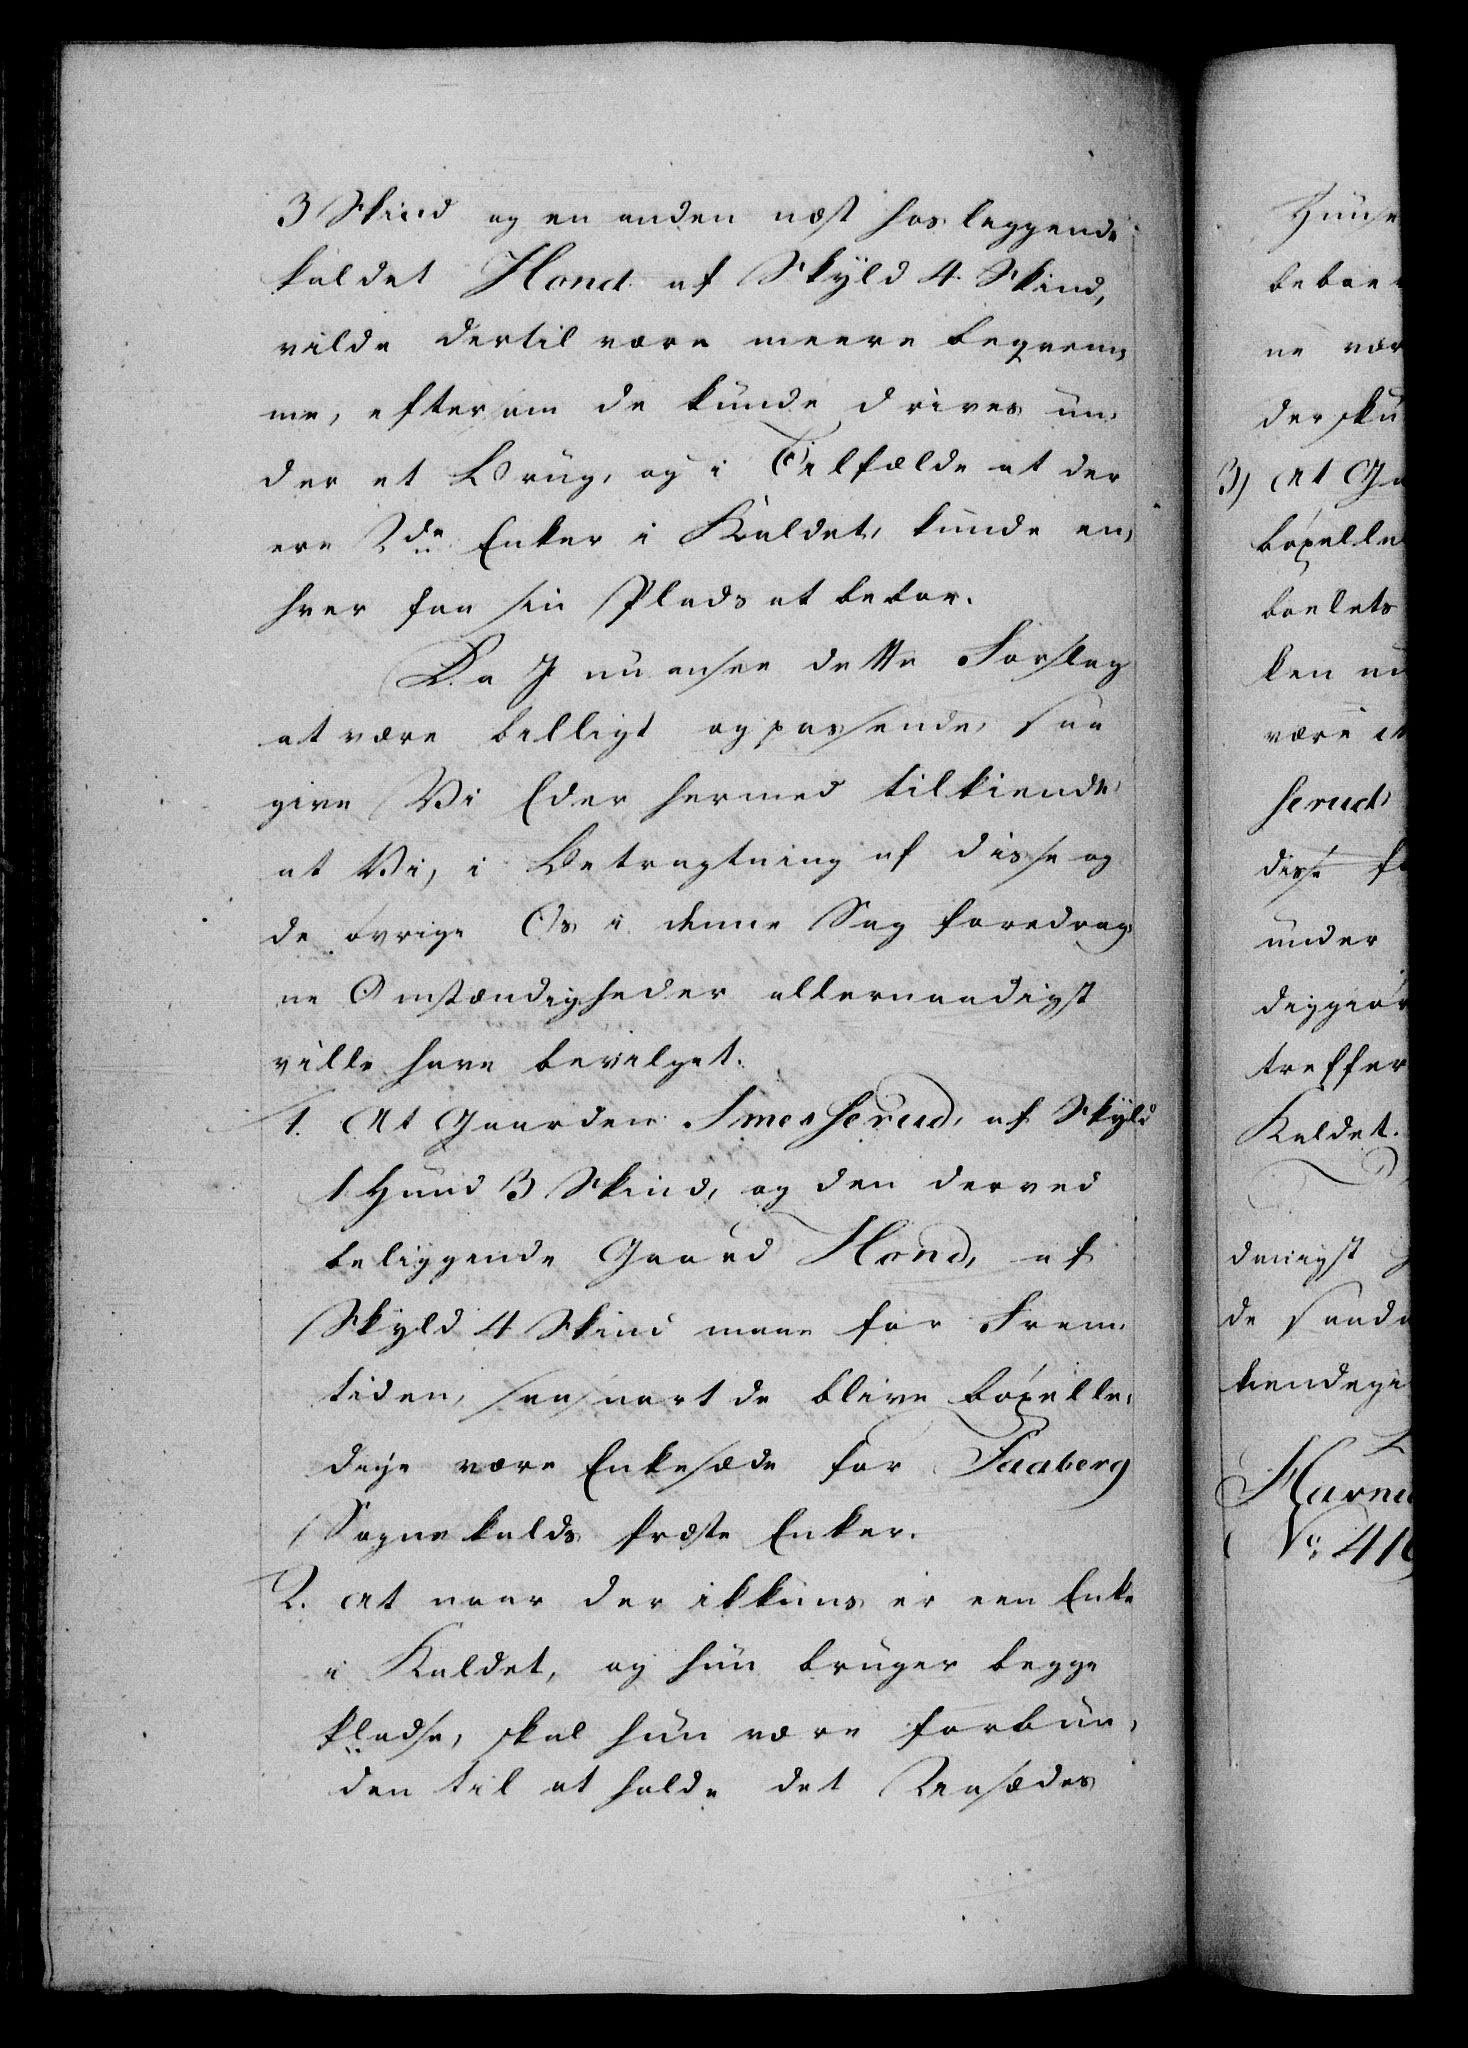 3 Skind og en anden næst hos leggende
kaldet Hond af Skyld 4 Skind,
vilde dertil være meere beqvem,
me, eftersom de kunde drives un,
der et Brug, og i Tilfælde at der
ere 2de Enker i Kaldet, kunde en,
hver faa sin Plads at beboe.
Da I nu ansee dette Forslag
at være billigt og passende, saa
give Vi Eder hermed tilkiende,
at Vi, i Betragtning af disse og
de øvrige Os i denne Sag foredrag,
ne Omstændigheder allernaadigst
ville have bevilget.
1. At Gaarden Smedserud, af Skyld
1 Hund 3 Skind, og den derved
beliggende Gaard Hond, af
Skyld 4 Skind maae for Frem,
tiden, saasnart de blive bøxelle,
dige være Enkesæde for Faaberg
Sognekalds Præste Enker.
2. At naar der ikkuns er een Enke
i Kaldet, og hun bruger begge
Pladse, skal hun være forbun,
den til at holde det Ensædes
Huuse
beboe
ne vær
der sku
3) At Ga
bøxelle
boelets
ken nu
være
serud,
disse f
under
diggiør
treffer
Kaldet.
drivigst
de
kiendegi
Havne
No. 416